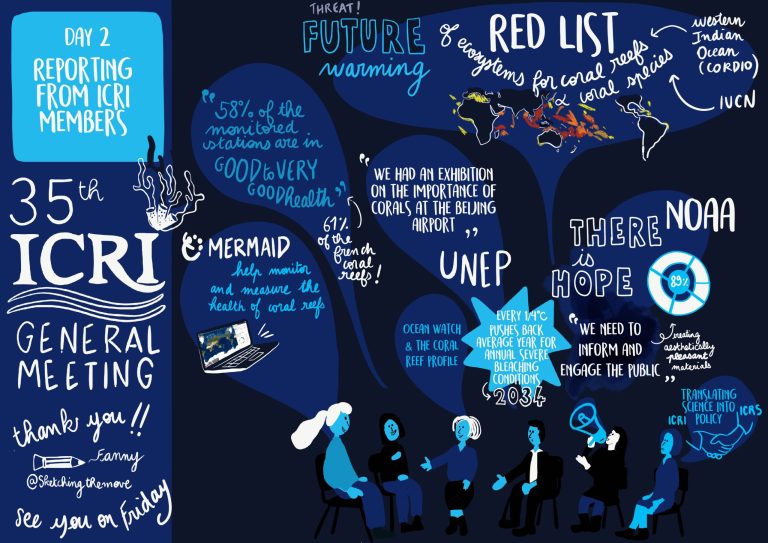 DAY 2
REPORTING
FROM ICRI
MEMBERS
35th
ICRI
GENERAL
MEETING
thank you!!
Fanny
@Sketchingthemove
see you on Friday
THREAT!
FUTURE
warming
RED LIST
of ecosystems for coral reefs
& coral species
Western
Indian
Ocean
(CORDIO)
IUCN
"58% of the
monitored
stations are in
GOOD to VERY
GOOD health"
61%
of the french
coral
reefs!
MERMAID
help monitor
and measure the
health of coral reefs
"WE HAD AN EXHIBITION
ON THE IMPORTANCE OF
CORALS AT THE BEIJING
AIRPORT"
UNEP
OCEAN WATCH
& THE CORAL
REEF PROFILE
EVERY 1/4°C
PUSHES BACK
AVERAGE YEAR FOR
ANNUAL SEVERE
BLEACHING
CONDITIONS
2034
THERE
is
HOPE
NOAA
89%
"WE NEED TO
INFORM AND
ENGAGE THE PUBLIC"
Treating
aesthetically
pleasant
materials
TRANSLATING
SCIENCE INTO
POLICY
ICRI
ICRS